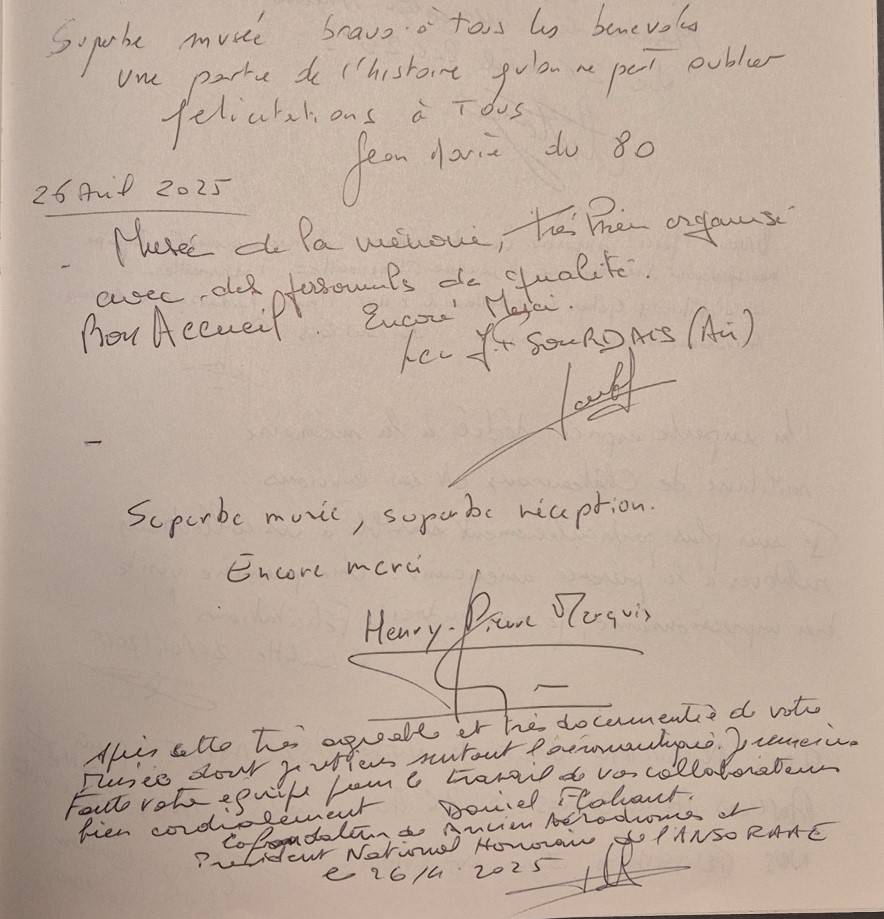 Superbe musée bravo à tous les benevoles
une partie de l'histoire qu'on ne peut oublier
felicitations à Tous
Jean Marie du 80
26 Avril 2025
- Musée de la mémoire, très bien organisé
avec des personnels de qualité.
Bon Accueil. Encore Merci.
JF SOURDAIS (Air)
-
Superbe musée, superbe réception.
Encore merci
Henry-Pierre Marquis
Après cette très agreable et très documentée de votre
Musée dont je retiens surtout l'aéronautique. Je remercie
toute votre equipe pour le travail de vos collaborateurs
bien cordialement Daniel
Cofondateur de Ancien Aérodromes et
President National Honoraire de l'ANSORAAE
le 26/4.2025